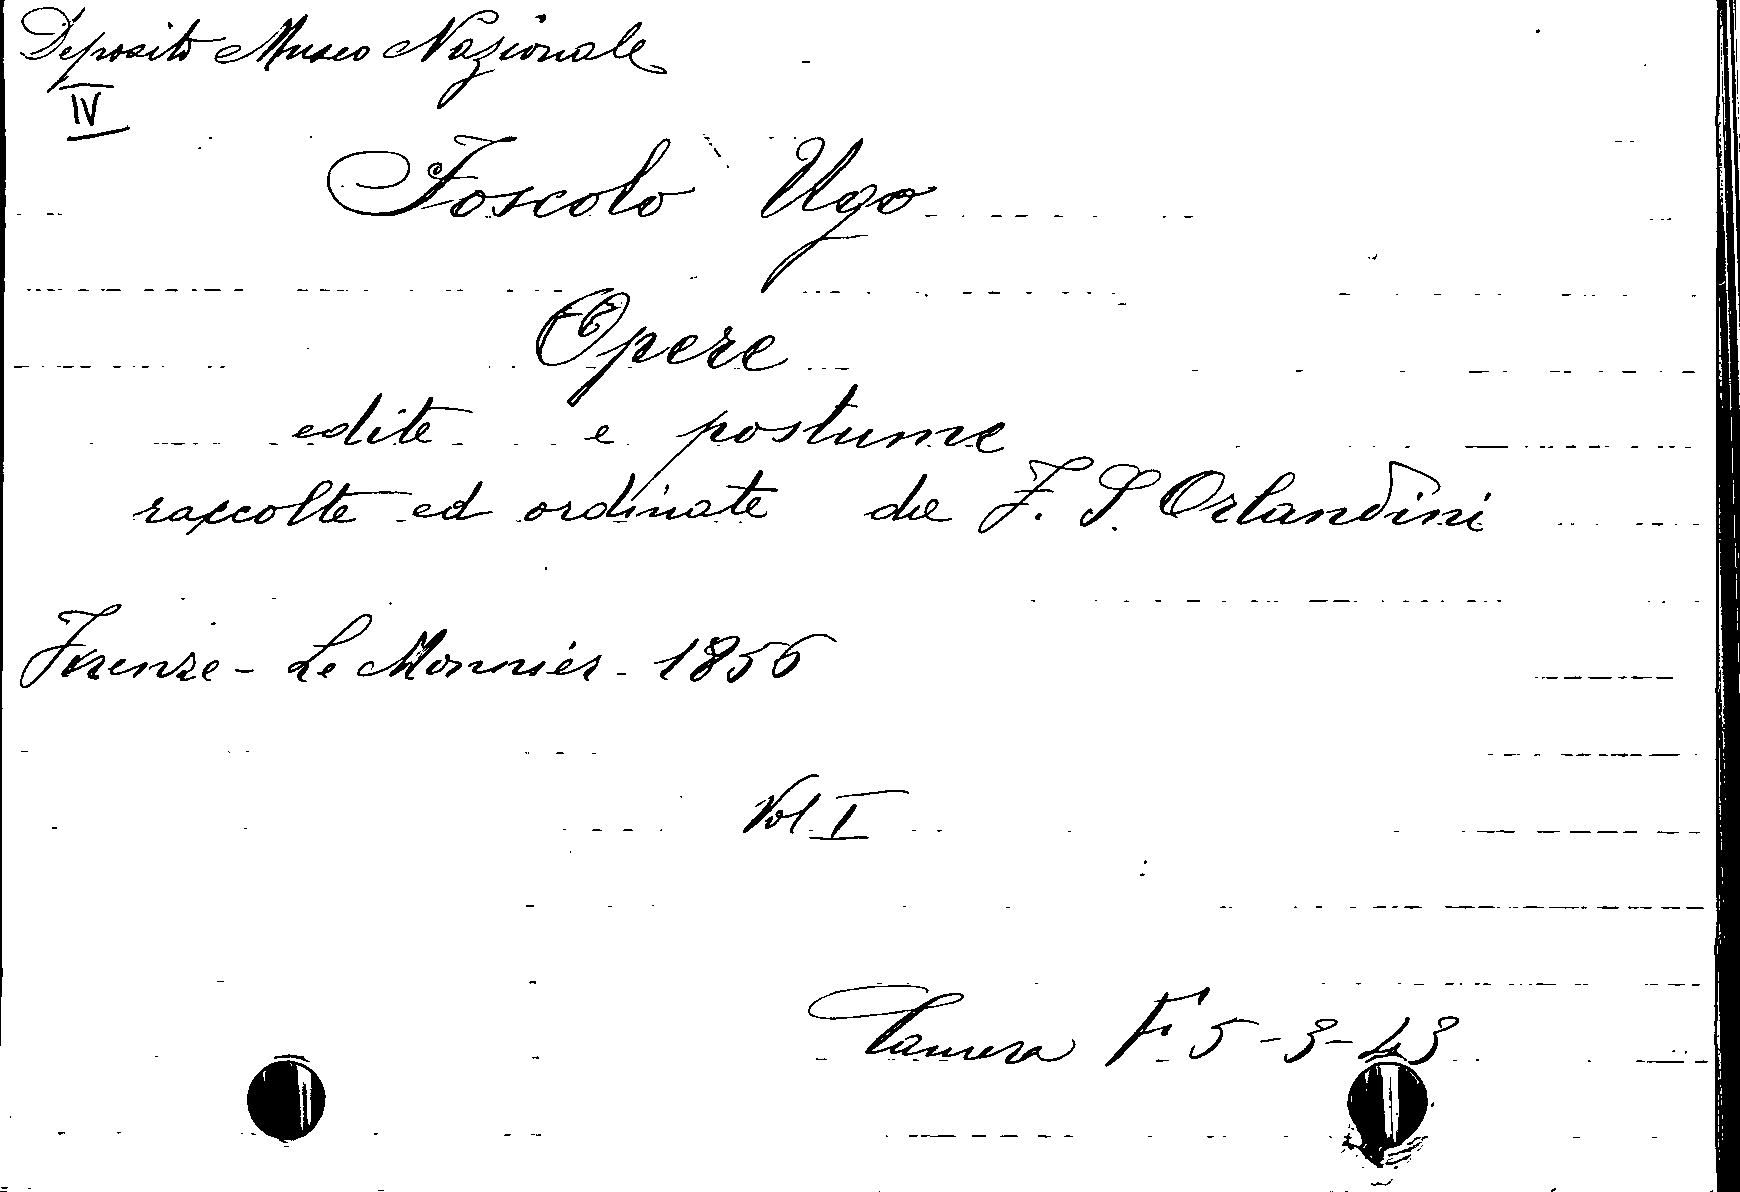 Deposito Museo Nazionale
IV
Foscolo Ugo
Opere
edite e postume
raccolte ed ordinate da F. S. Orlandini
Firenze - Le Monnier - 1856
Vol I
Camera F. 5-3-43